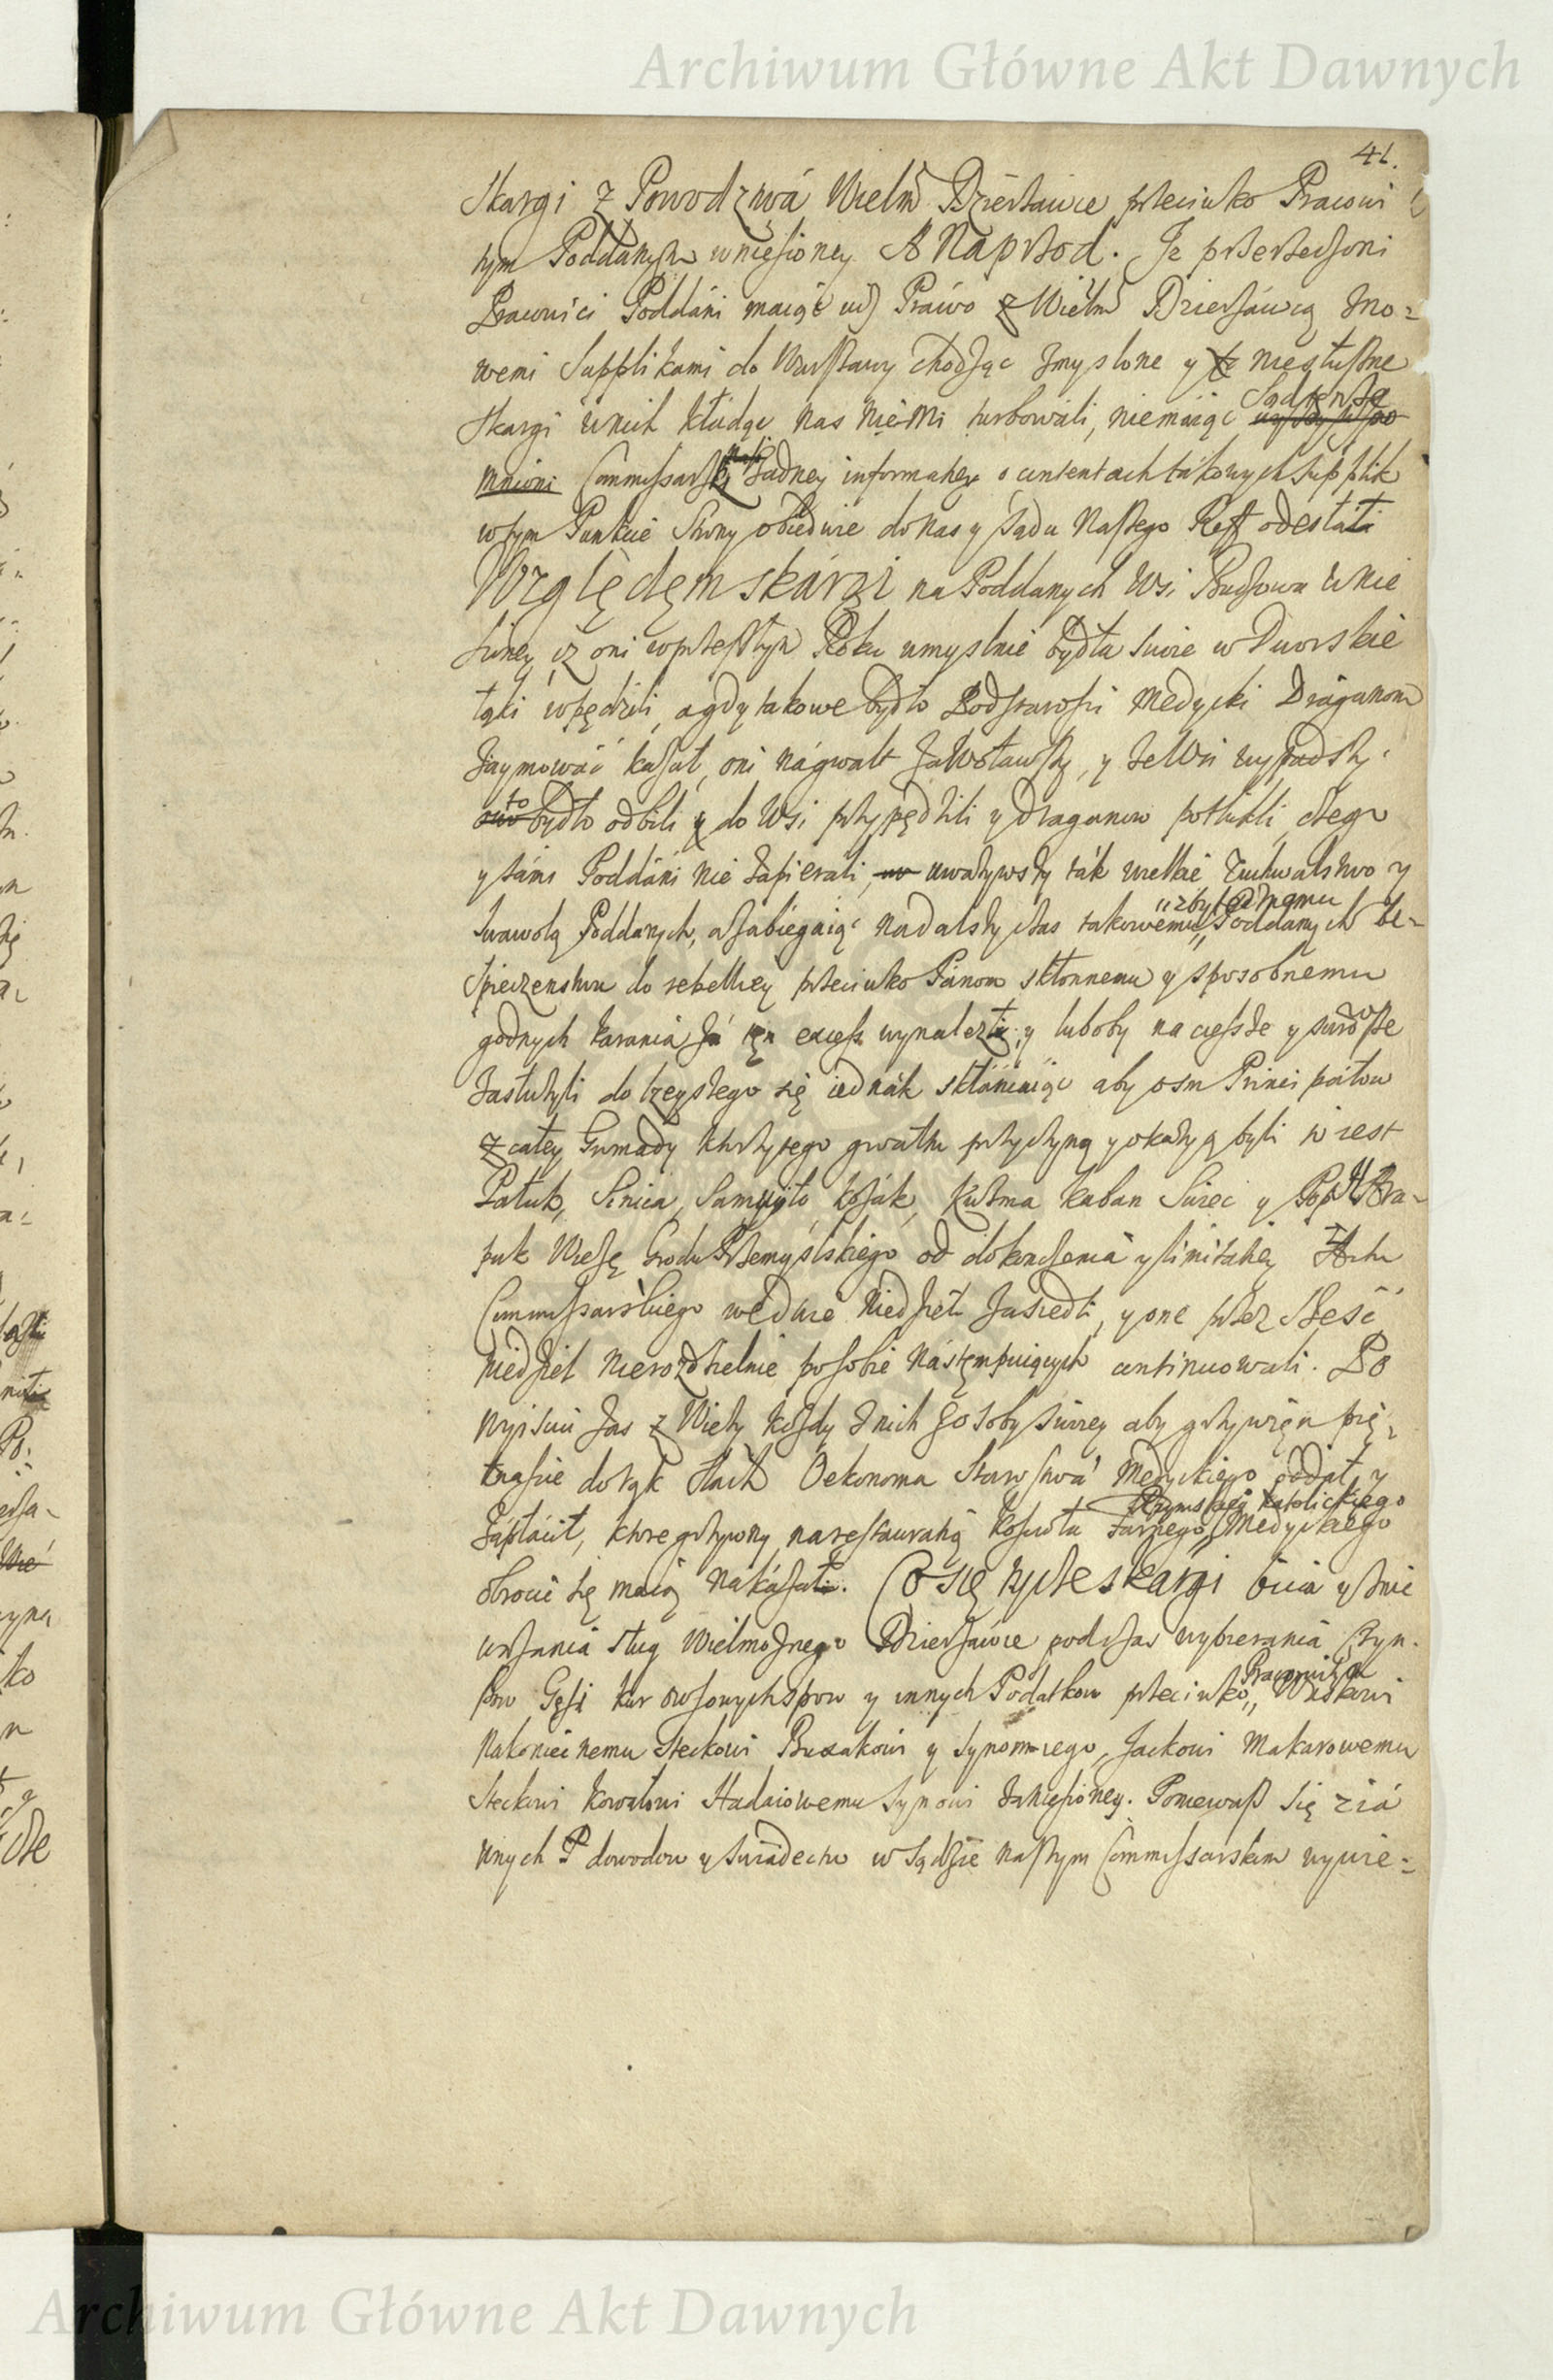 Archiwum Główne Akt Dawnych
41.
Skargi z Powodztwá Wielm Dzierżawce przeciwko Pracowi
tym Poddanym wniesioney A Naprzod. Że przerzeczoni
Pracowici Poddáni maiąc iuż Práwo z Wielm Dzierżáwcą zno=
wemi Supplikami do Warszawy chodząc zmyslone y niesłuszne
Skargi w nich kłádąc nas niemi turbowali, niemáiąc Sąd
Commissarski żadney informatiey o contentach tákowych supplik
w tym Punkcie Strony obiedwie do nas y sądu Naszego Reft odesłáła
Względem skárgi na Poddanych Wsi Buczowa wnie
sioney, iz oni w przeszłym Roku umyslnie bydła swoie w Dworskie
łąki wpędzili, a gdy takowe bydło Podstarosci Medycki Draganom
Zaymowáć kazał, oni nágwałt zawoławszy, y ze Wsi wypadszy
to bydło odbili y do Wsi przypędzili y draganow potłukli, czego
y sámi Poddáni nie zápierali, uważywszy ták wielkie zuchwalstwo y
swawolą Poddanych, a zabiegaiąc nadalszy czas takowemu
zbytecznemu
Poddanych be=
spieczenstwu do rebelliey przeciwko Pánom skłonnemu y sposobnemu
godnych karania zá ten excess wynalezli, y luboby na cięższe y surowsze
zasłużyli do lzeyszego się iednák skłániaiąc aby osm Principałow
z całey Gromady ktorzy tego gwałtu przyczyną y okazyą byli to iest
Pałuk, Senica, Samuyło, Kozák, Kuzma Kaban Szwec y Pop Hra=
puk Wieżę Grodu Przemyslskiego od dokonczenia y limitatiey Actu
Commissarskiego we dwie Niedzieli zasiedli, y one przez sześć
niedziel nierozdzielnie po sobie nástępuiących continuowali. Po
wyisciu zas z Wieży kożdy z nich z osoby swoiey aby grzywien pię=
tnascie do rąk Szlach Oekonoma Starostwá Medyckiego oddał y
Rzymskiego Katolickiego
záplácił, ktore grzywny na restauratią Koscioła Farnego Medyckiego
obrocić się maią nakázali. Co się tycze skárgi bicia y znie
ważania sług Wielmożnego Dzierżáwce podczas wybierania Czyn=
szow Gęsi kur owsow y innych Podatkow przeciwko
Pracowitym
Waskowi
Nakoniecznemu Steckowi Buxakowi y synom iego, Jackowi Makarowemu
Steckowi Kowalowi Hadaiowemu synowi zaniesioney. Ponieważ się z iá
wnych P dowodow y swiádectw w sądzie naszym Commissarskim wywie=
Archiwum Główne Akt Dawnych